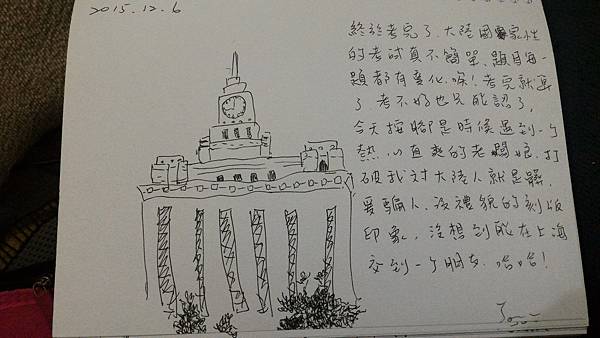 2015.12.6
終於考完了.大陸國家性
的考試真不簡單.題目每一
題都有變化.唉!考完就算
了 考不好也只能認了,
今天按腳是時候遇到一个
熱心直爽的老闆娘.打
破我對大陸人就是髒.
要騙人.沒禮貌的刻版
印象.沒想到能在上海
交到一个朋友.哈哈!